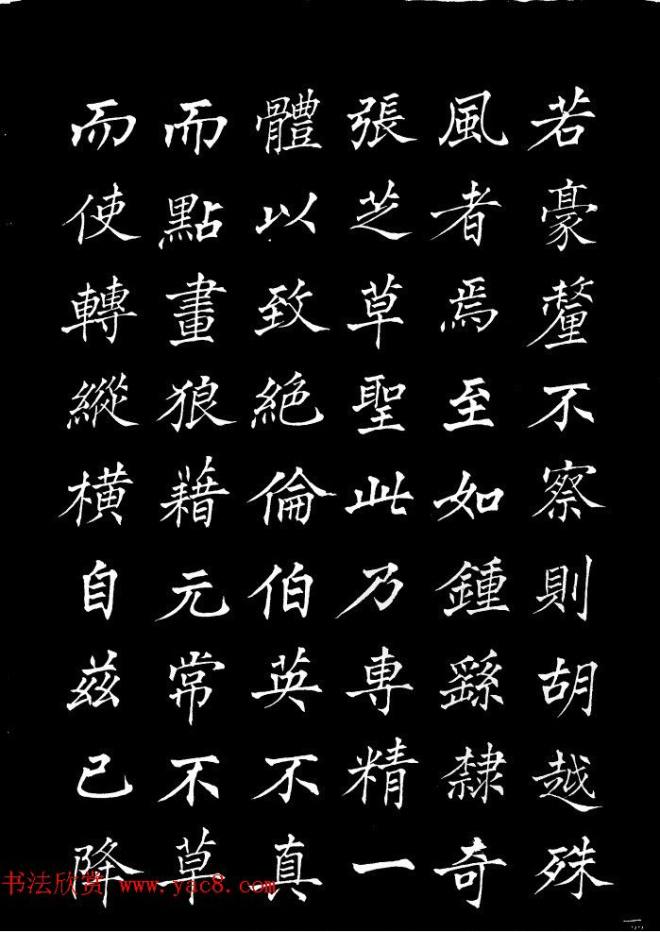 若豪釐不察則胡越殊
風者焉至如鍾繇隸奇
張芝草聖此乃專精一
體以致絶倫伯英不真
而點畫狼藉元常不草
而使轉縱橫自茲已降
书法欣赏 www.yac8.com